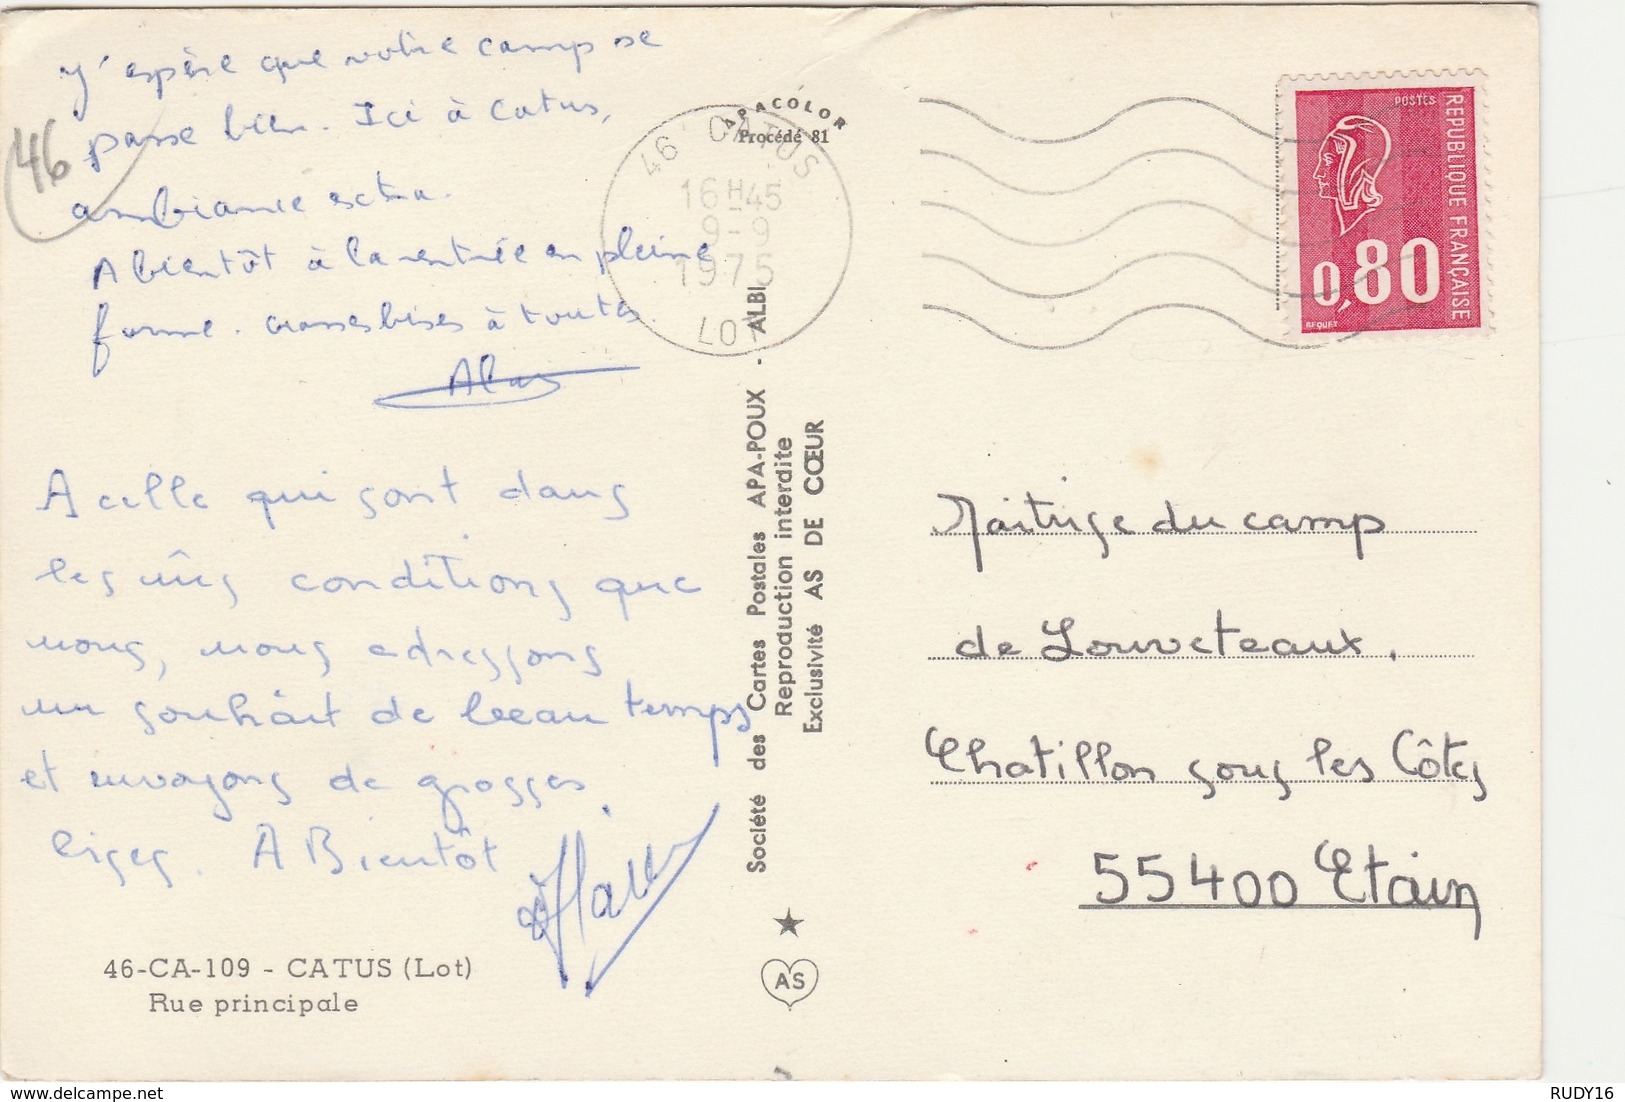 J'espère que votre camp se
passe bien. Ici à Catus,
ambiance extra.
A bientôt à la rentrée en pleine
forme. Grosses bises à toutes
46
A celle qui sont dans
les mêmes conditions que
nous, nous adressons
un souhait de beau temps
et envoyons de grosses
bises. A Bientôt
46-CA-109 - CATUS (Lot)
Rue principale
APACOLOR
Procédé 81
46 CATUS
16H45
9-9
1975
LOT
Société des Cartes Postales APA-POUX - ALBI
Reproduction interdite
Exclusivité AS DE CŒUR
AS
POSTES
REPUBLIQUE FRANÇAISE
0,80
BEQUET
Maitrise du camp
de Louveteaux.
Chatillon sous les Côtes
55400 Etain
RUDY16